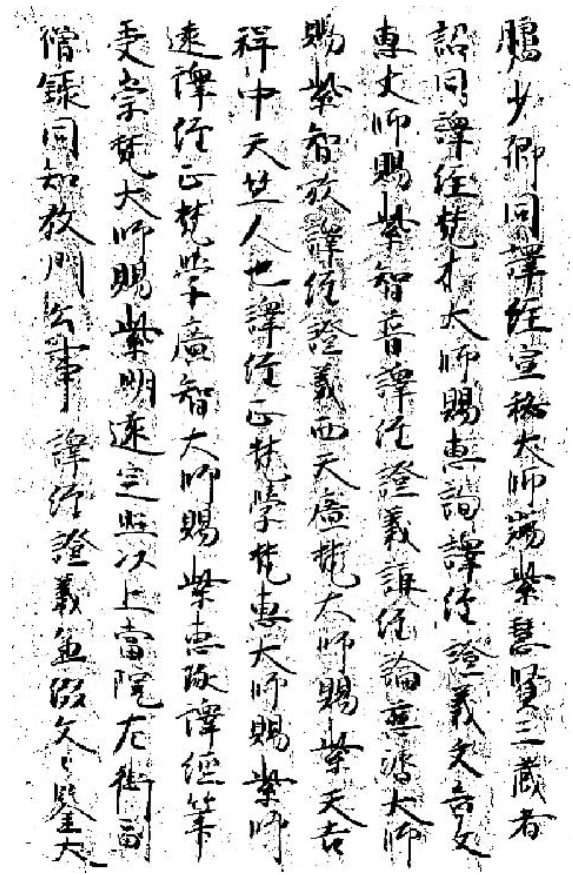 鴻少卿同譯經宣秘大師賜紫慧賢三藏者
詔同譯經梵才大師賜惠詢譯經證義文章文
惠大師賜紫智普譯經證義講經論慈濟大師
賜紫智孜譯經證義西天廣梵大師賜紫天吉
祥中天竺人也譯經正梵學梵惠大師賜紫師
遠譯經正梵學廣智大師賜紫惠琢譯經筆
受崇梵大師賜紫明遠定照以上當院左街副
僧錄同知教門公事譯經證義兼綴文鑒大